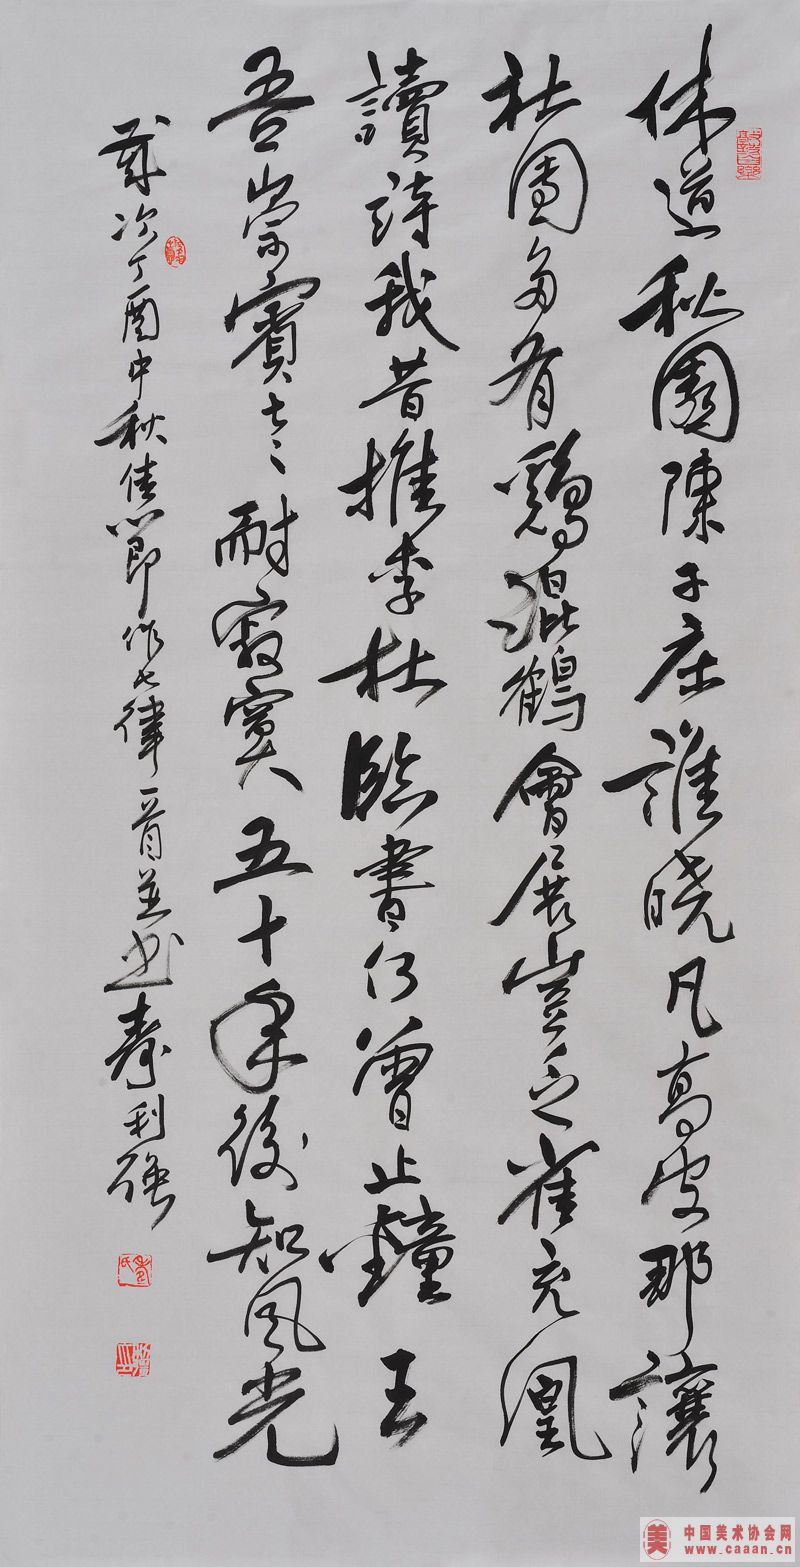 休道秋園陳子庄誰曉凡高那讓
社團多有鶏混鶴會展豈乏雀充凰
讀詩我昔推李杜臨書何曾止鐘王
吾崇賓老耐寂寞五十年後知風光
歲次丁酉中秋佳節作七律一首並書秦利强
中国美术协会网
www.caaan.cn